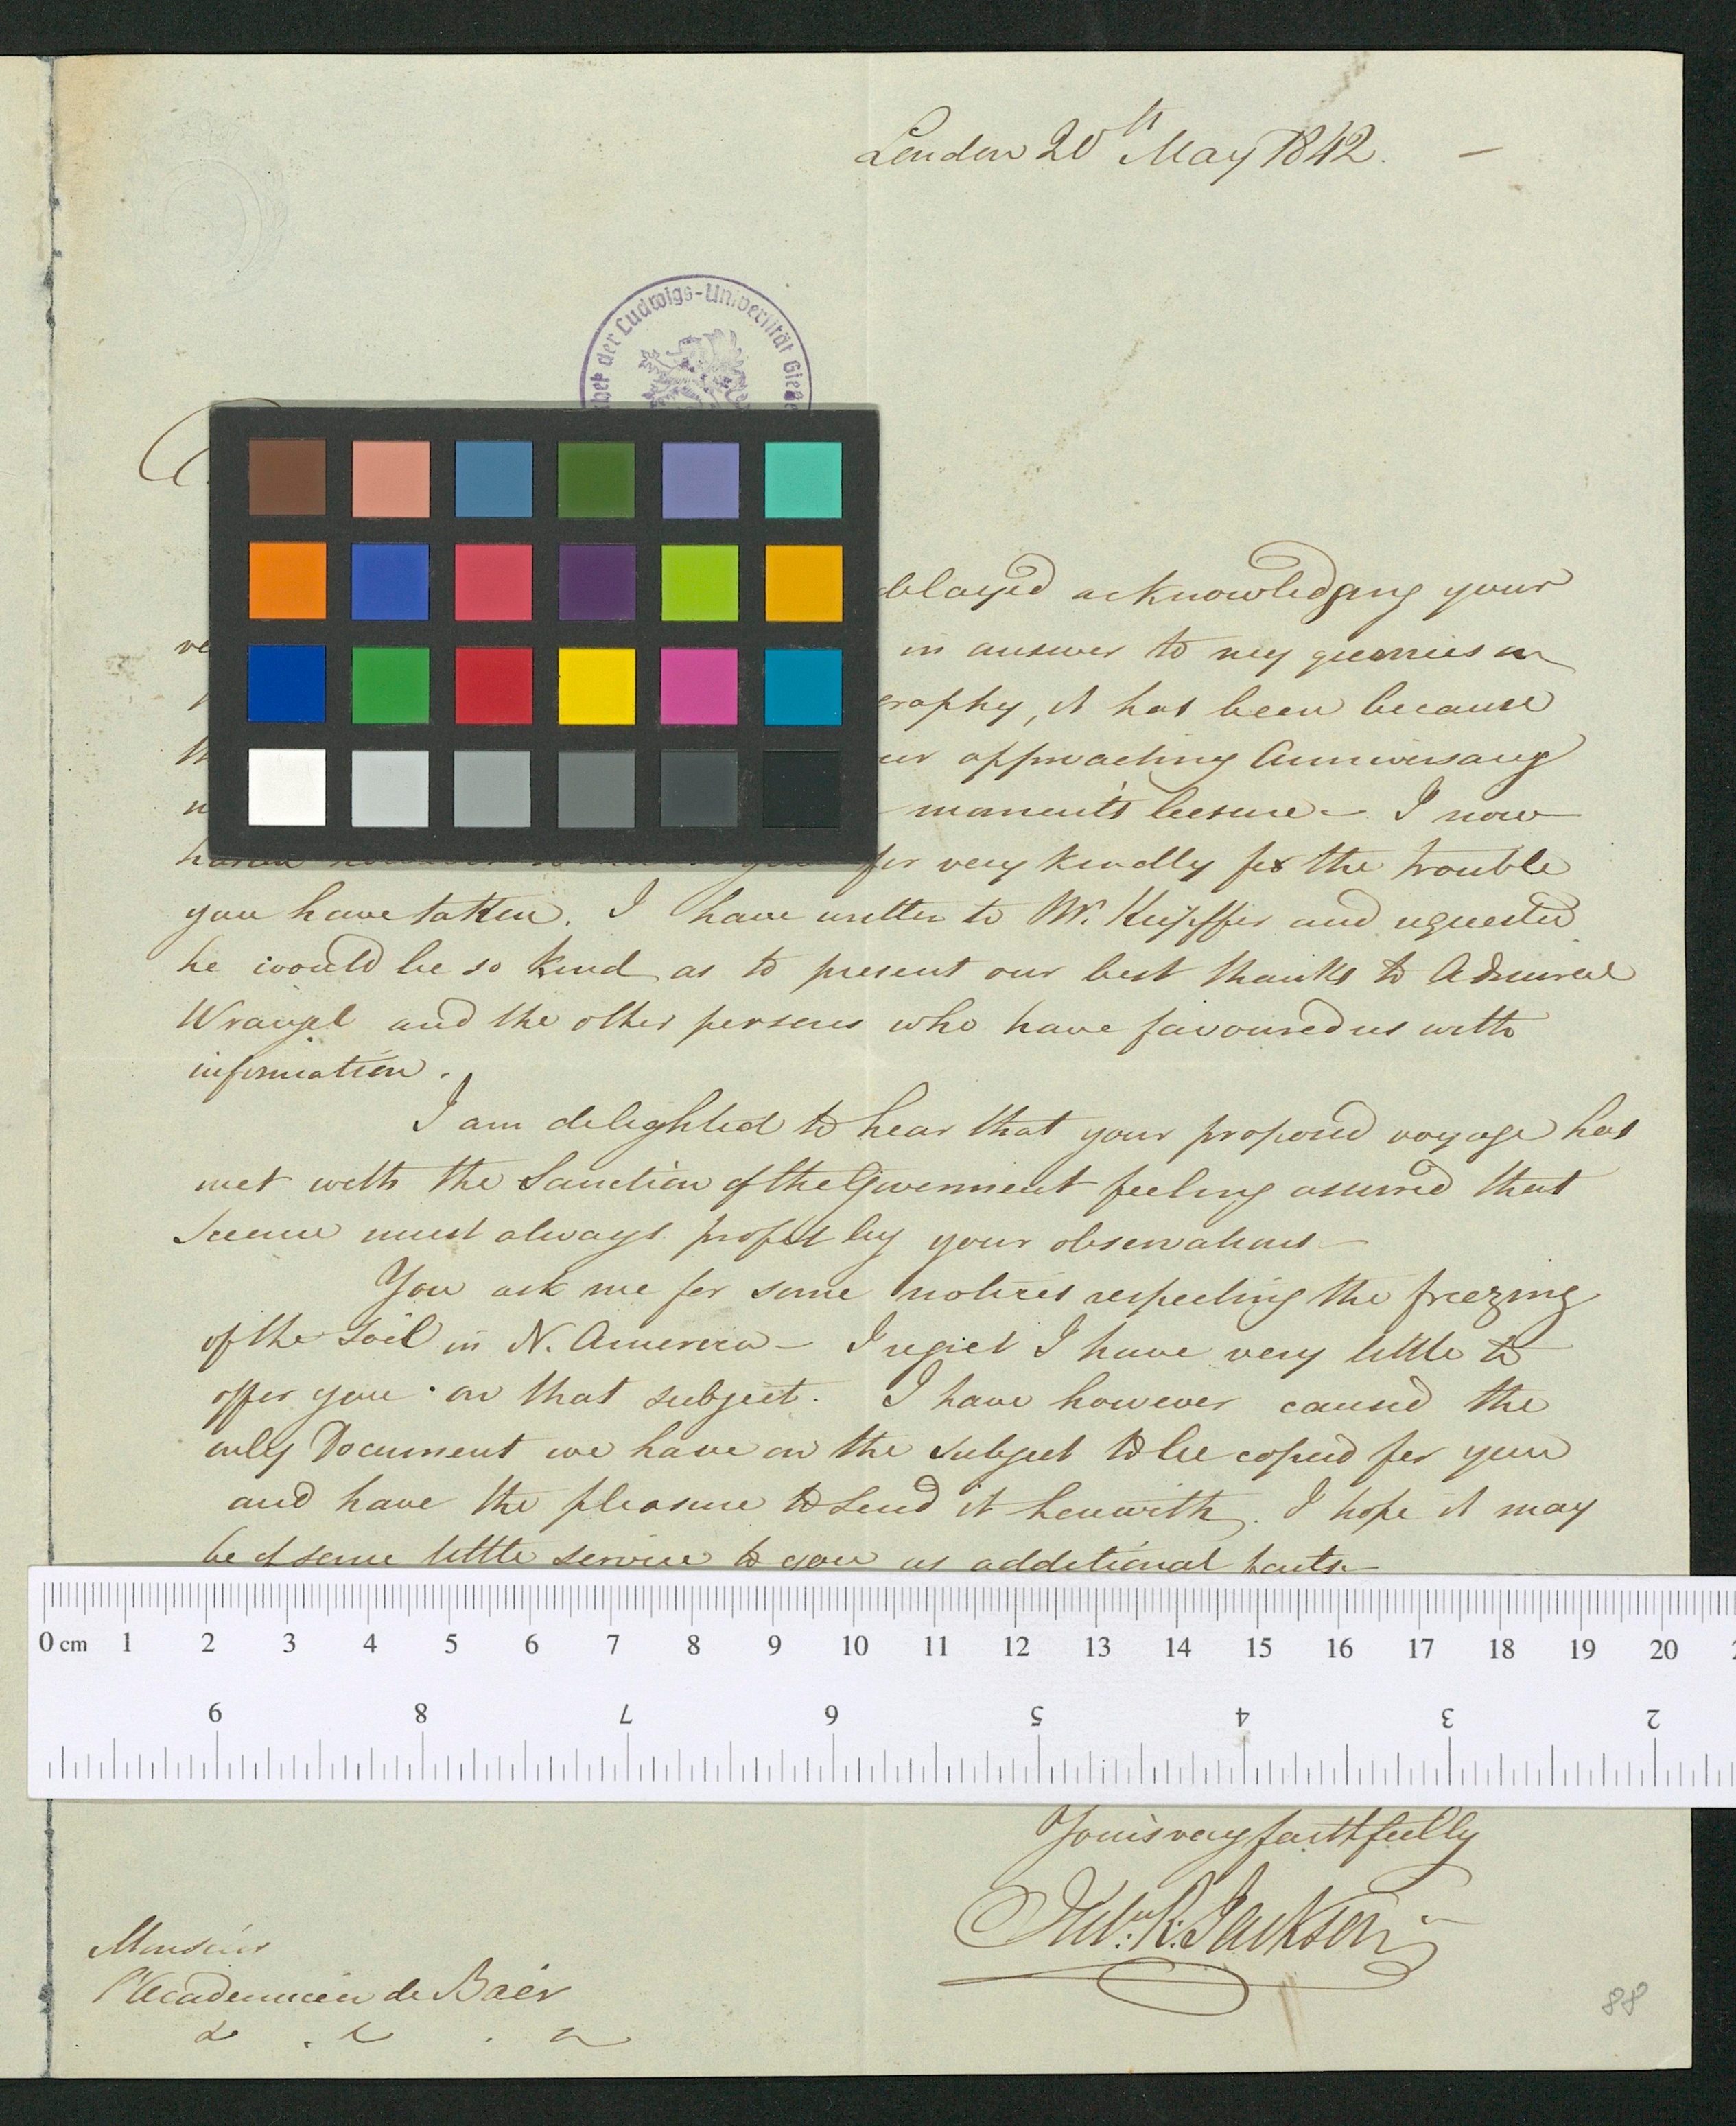 London 20th May 1842. —
der Ludwigs-Universität
delayed acknowledging your
in answer to my querries on
graphy, it has been because
our approaching Anniversary
moment's leesure — I now
for very kindly for the trouble
you have taken. I have written to Mr. Kupffer and requested
he would be so kind as to present our best thanks to Admiral
Wrangel and the other persons who have favoured us with
information.
I am delighted to hear that your proposed voyage has
met with the Sanction of the Government feeling assured that
Science must always profit by your observations —
You ask me for some notices respecting the freezing
of the Soil in N. America — I regret I have very little to
offer you on that subject. I have however caused the
only Document we have on the subject to be copied for you
and have the pleasure to send it herewith. I hope it may
be of some little service to you as additional facts —
0 cm 1 2 3 4 5 6 7 8 9 10 11 12 13 14 15 16 17 18 19 20
2 3 4 5 6 7 8 9
Yours very faithfully
R. Jackson
Monsieur
l'Academicien de Baer
88